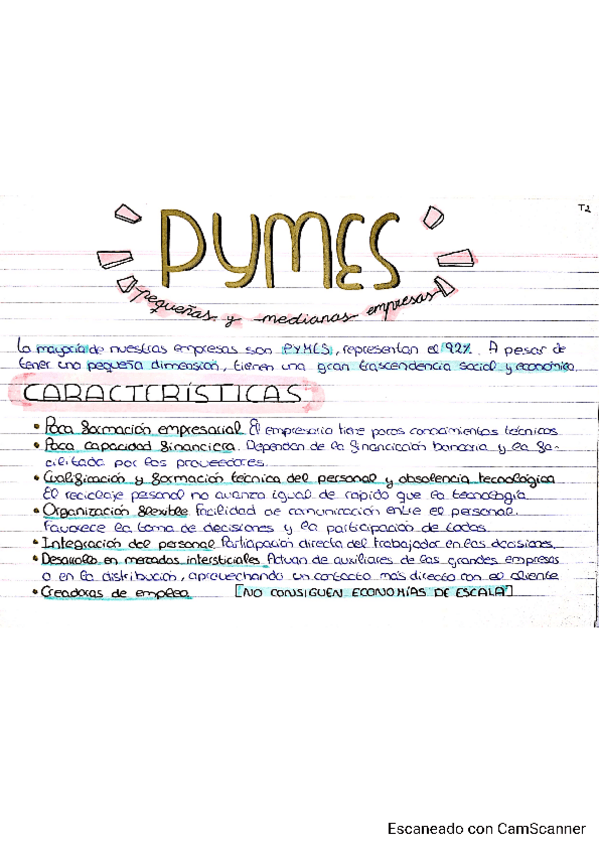 T2
PYMES
pequeñas y medianas empresas
La mayoría de nuestras empresas son PYMES, representan el 92%. A pesar de
tener una pequeña dimensión, tienen una gran trascendencia social y económica.
CARACTERÍSTICAS
• Poca formación empresarial El empresario tiene pocos conocimientos técnicos
• Poca capacidad financiera. Dependen de la financiación bancaria y la fa-
cilitada por los proveedores.
• Cualificación y formación técnica del personal y obsolencia tecnológica
El reciclaje personal no avanza igual de rápido que la tecnología
• Organización flexible Facilidad de comunicación entre el personal.
Favorece la toma de decisiones y la participación de todos.
• Integración del personal Participación directa del trabajador en las decisiones.
• Desarrollo en mercados intersticiales Actúan de auxiliares de las grandes empresas
o en la distribución, aprovechando un contacto más directo con el cliente
• Creadoras de empleo [NO CONSIGUEN ECONOMÍAS DE ESCALA]
Escaneado con CamScanner